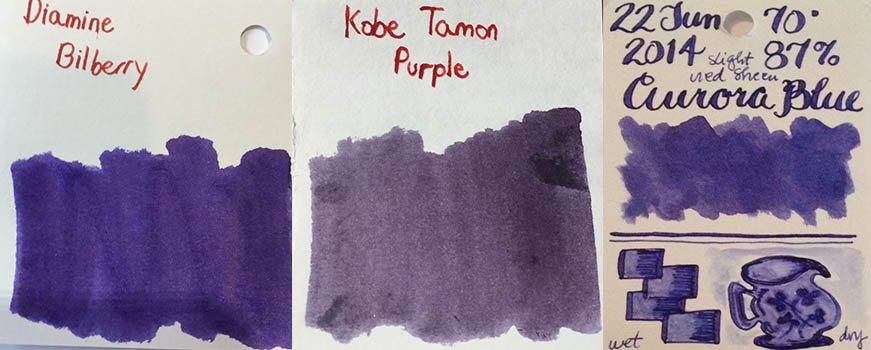 Diamine
Bilberry
Kobe Tamon
Purple
22 Jun 70°
2014 slight 87%
red sheen
Aurora Blue
wet dry